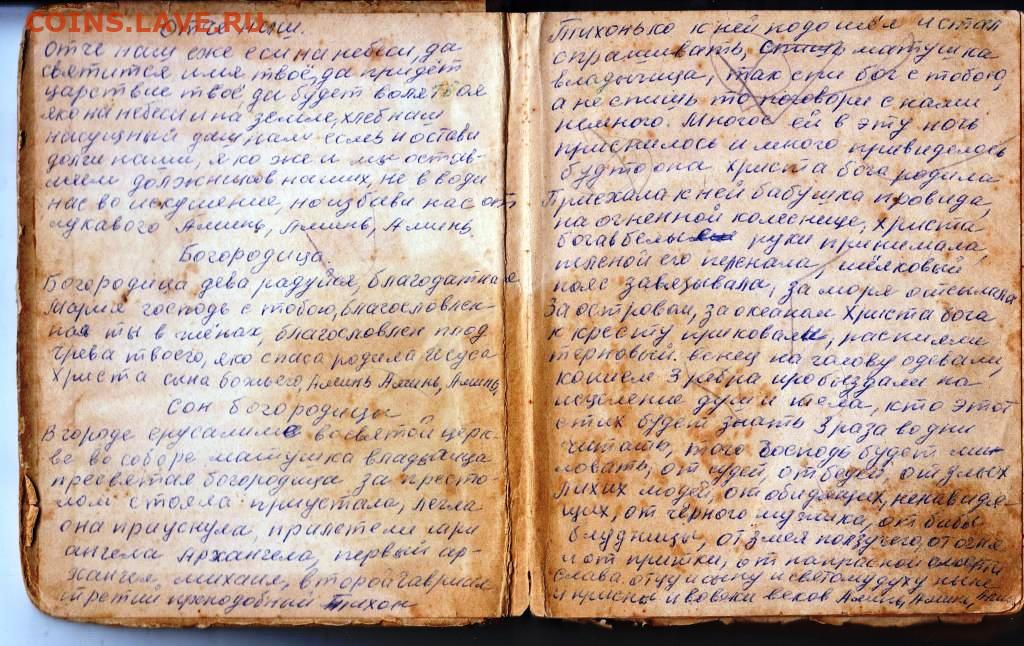 COINS.LAVE.RU
Отче наш.
отче наш еже еси на небеси, да
святится имя твое, да придёт
царствие твоё да будет воля твоя
яко на небеси и на земле, хлеб наш
насущный даш, нам есть и остави
долги наши, яко же и мы остав-
ляем должников наших, не в води
нас во искушение, но избави нас от
лукавого Аминь, Аминь, Аминь.
Богородица
Богородица дева радуйся, благодатная
Мария господь с тобою, благословлен-
ная ты в жёнах, благословлен плод
чрева твоего, яко спаса родила Исуса
Христа сына божьего, Аминь Аминь, Аминь,
Сон богородицы
В городе ерусалиме во святой церк-
ве во соборе матушка владычица
пресвятая богородица за престо-
лом стояла приустала, легла
она приуснула, прилетели три
ангела Архангела, первый ар-
хангел, михаил, второй гавриил
третий преподобный Тихон
Тихонько к ней подошёл и стал
спрашивать, матушка
владычица, так спи бог с тобою,
а не спишь то поговори с нами
немного. Многое ей в эту ночь
приснилось и много привиделось
будто она Христа бога родила
Приехала к ней бабушка провида,
на огненной колеснице, Христа
бога в белы руки принимала,
пеленой его пеленала, шёлковый
пояс завязывала, за моря отсылала
За островом, за океаном Христа бога
к кресту приковали, распияли
терновый венец на голову одевали,
копием 3 ребра пробъездали на
исцеление души и тела, кто этот
стих будет знать 3 раза во дни
читать, того Господь будет ми-
ловать, от судей, от бедей, от злых
лихих людей, от обидящих, ненавидя-
щих, от чёрного мужика, от бабы
блудницы, от змея ползучего, от огня
и от пришки, от напрасной смерти
слава отцу и сыну и святому духу ныне
и присны и вовеки веков Аминь, Аминь, Аминь